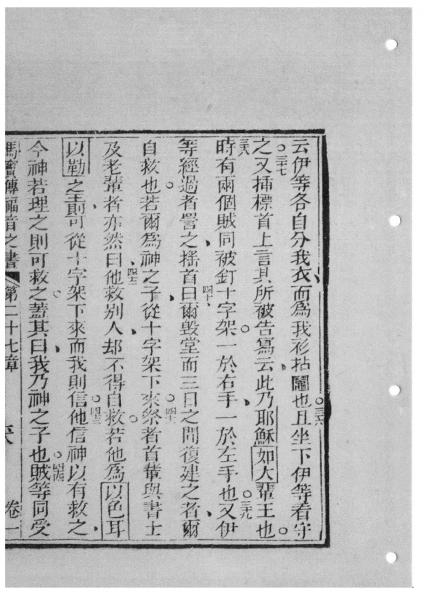 云伊等各自分我衣而為我衫拈鬮也三六且坐下伊等看守
之三七又插標首上言其所被告寫云此乃耶穌如大輩王也
三八時有兩個賊同被釘十字架一於右手一於左手也三九又伊
等經過者詈之搖首四十曰爾毀堂而三日之間復建之者爾
自救也若爾為神之子從十字架下來四一祭者首輩與書士
及老輩者亦然曰四二他救別人却不得自救若他為以色耳
以勒之王則可從十字架下來而我則信他四三信神以有救之
今神若理之則可救之蓋其曰我乃神之子也四四賊等同受
馬竇傳福音之書 第二十七章 卷一